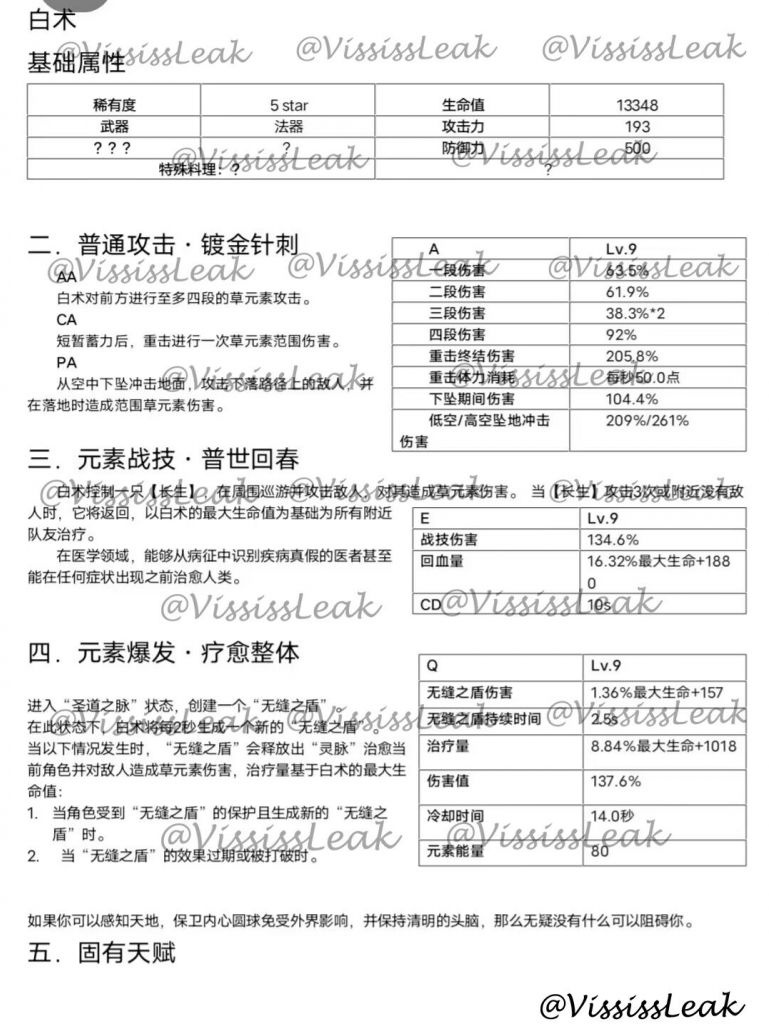 白术
@VississLeak @VississLeak @VississLeak
基础属性
稀有度 5 star 生命值 13348
武器 法器 攻击力 193
？？？ ? 防御力 500
@VississLeak @VississLeak
特殊料理：？ ?
二．普通攻击·镀金针刺
@VississLeak @VississLeak @VississLeak
AA
白术对前方进行至多四段的草元素攻击。
CA
短暂蓄力后，重击进行一次草元素范围伤害。
PA
从空中下坠冲击地面，攻击下落路径上的敌人，并
在落地时造成范围草元素伤害。
@VississLeak @VississLeak
A Lv.9
一段伤害 63.5%
二段伤害 61.9%
三段伤害 38.3%*2
四段伤害 92%
重击终结伤害 205.8%
重击体力消耗 每秒50.0点
下坠期间伤害 104.4%
低空/高空坠地冲击 209%/261%
伤害
三．元素战技·普世回春
@VississLeak @VississLeak @VississLeak
白术控制一只【长生】，在周围巡游并攻击敌人，对其造成草元素伤害。 当【长生】攻击3次或附近没有敌
人时，它将返回，以白术的最大生命值为基础为所有附近
队友治疗。
在医学领域，能够从病征中识别疾病真假的医者甚至
能在任何症状出现之前治愈人类。
@VississLeak @VississLeak
E Lv.9
战技伤害 134.6%
回血量 16.32%最大生命+188
0
CD 10s
四．元素爆发·疗愈整体
进入“圣道之脉”状态，创建一个“无缝之盾”。
@VississLeak @VississLeak @VississLeak
在此状态下，白术将每2秒生成一个新的“无缝之盾”。
当以下情况发生时，“无缝之盾”会释放出“灵脉”治愈当
前角色并对敌人造成草元素伤害，治疗量基于白术的最大生
命值：
1. 当角色受到“无缝之盾”的保护且生成新的“无缝之
盾”时。
2. 当“无缝之盾”的效果过期或被打破时。
@VississLeak @VississLeak
Q Lv.9
无缝之盾伤害 1.36%最大生命+157
无缝之盾持续时间 2.5s
治疗量 8.84%最大生命+1018
伤害值 137.6%
冷却时间 14.0秒
元素能量 80
如果你可以感知天地，保卫内心圆球免受外界影响，并保持清明的头脑，那么无疑没有什么可以阻碍你。
五．固有天赋
@VississLeak